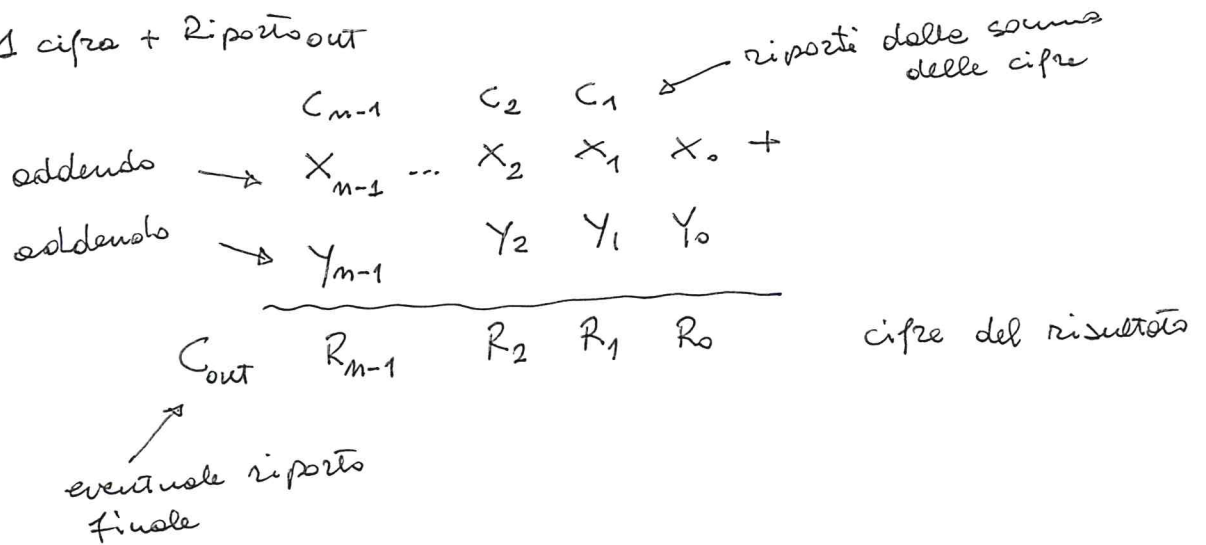 1 cifra + Riporto out
riporti dalla somma
delle cifre
C_{n-1} C_2 C_1
addendo → X_{n-1} ... X_2 X_1 X_0 +
addendo → Y_{n-1} Y_2 Y_1 Y_0
C_out R_{n-1} R_2 R_1 R_0 cifre del risultato
eventuale riporto
finale